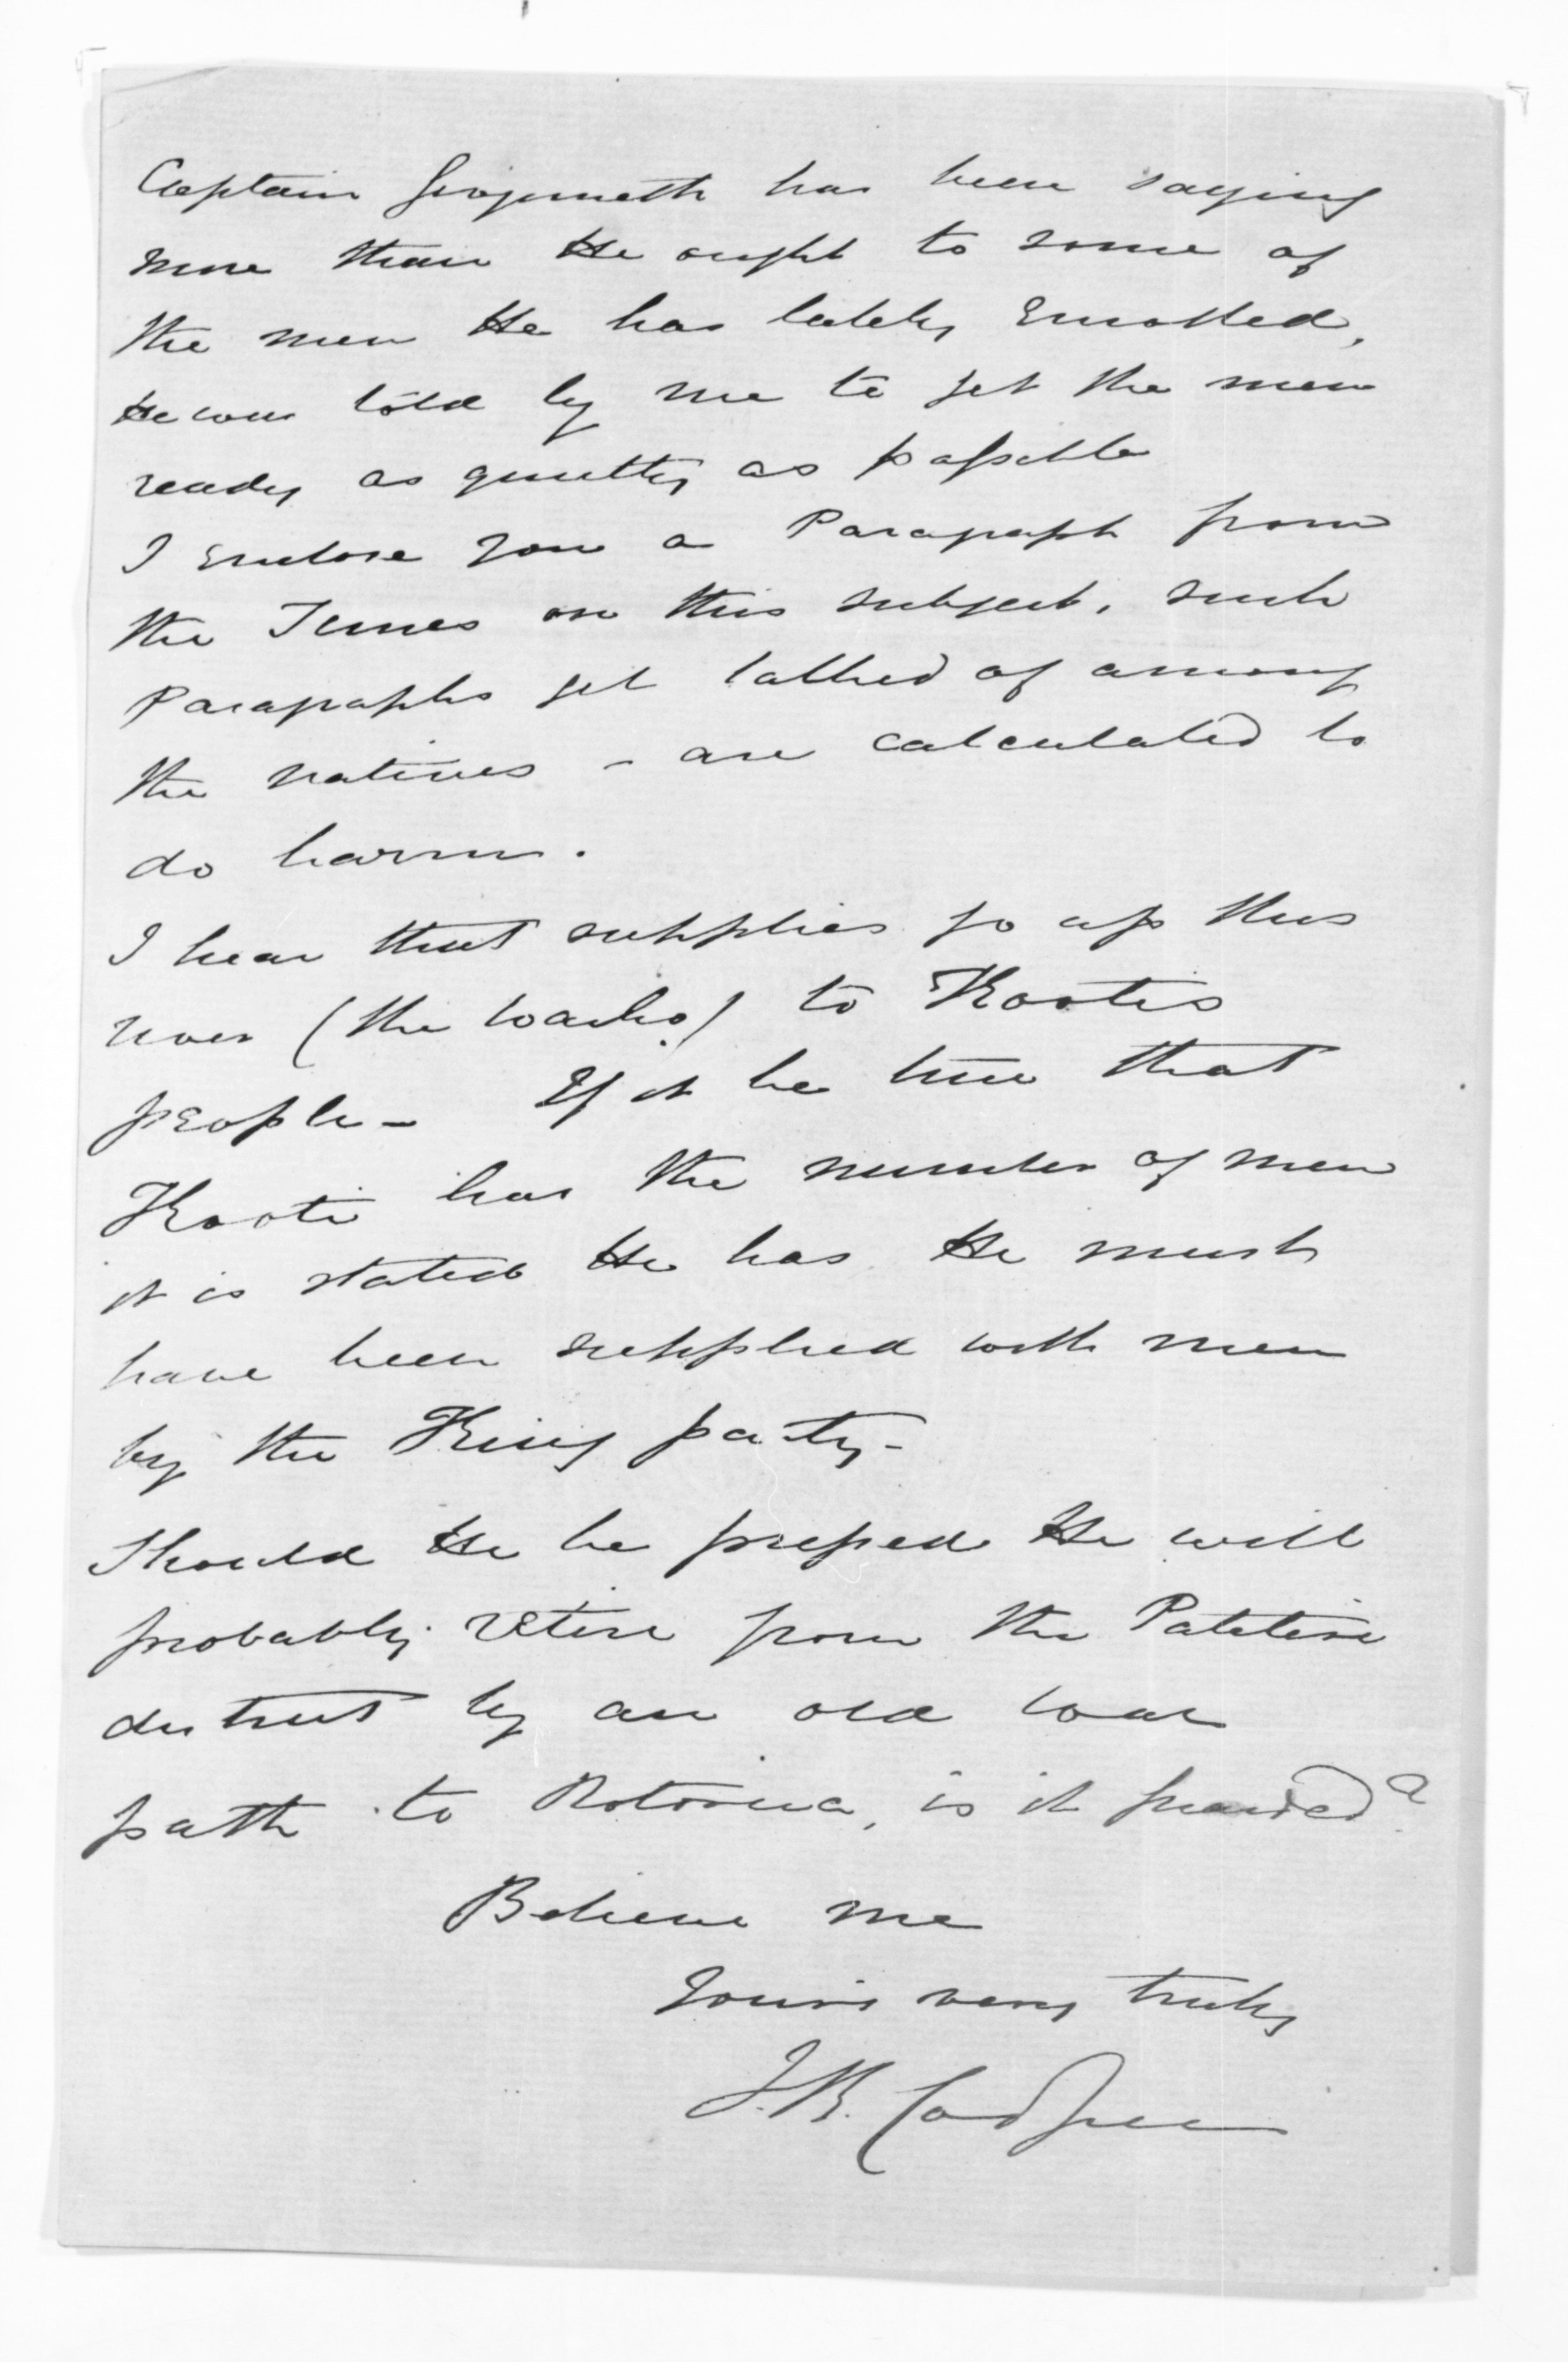 Captain has been saying
more than He ought to some of
the men He has lately Enrolled,
He was told by me to get the men
ready as quietly as possible
I Enclose you a Paragraph from
the Times on this subject, such
Paragraphs get talked of among
the natives - are calculated to
do harm.
I hear that supplies go up this
river (the Waiho) to Kooti's
people - If it be true that
Kooti has the number of men
it is stated He has He must
have been supplied with men
by the King party -
Should He be pressed He will
probably retire from the Patetere
district by an old war
path to Rotorua, is it guarded?
Believe me
Yours very truly